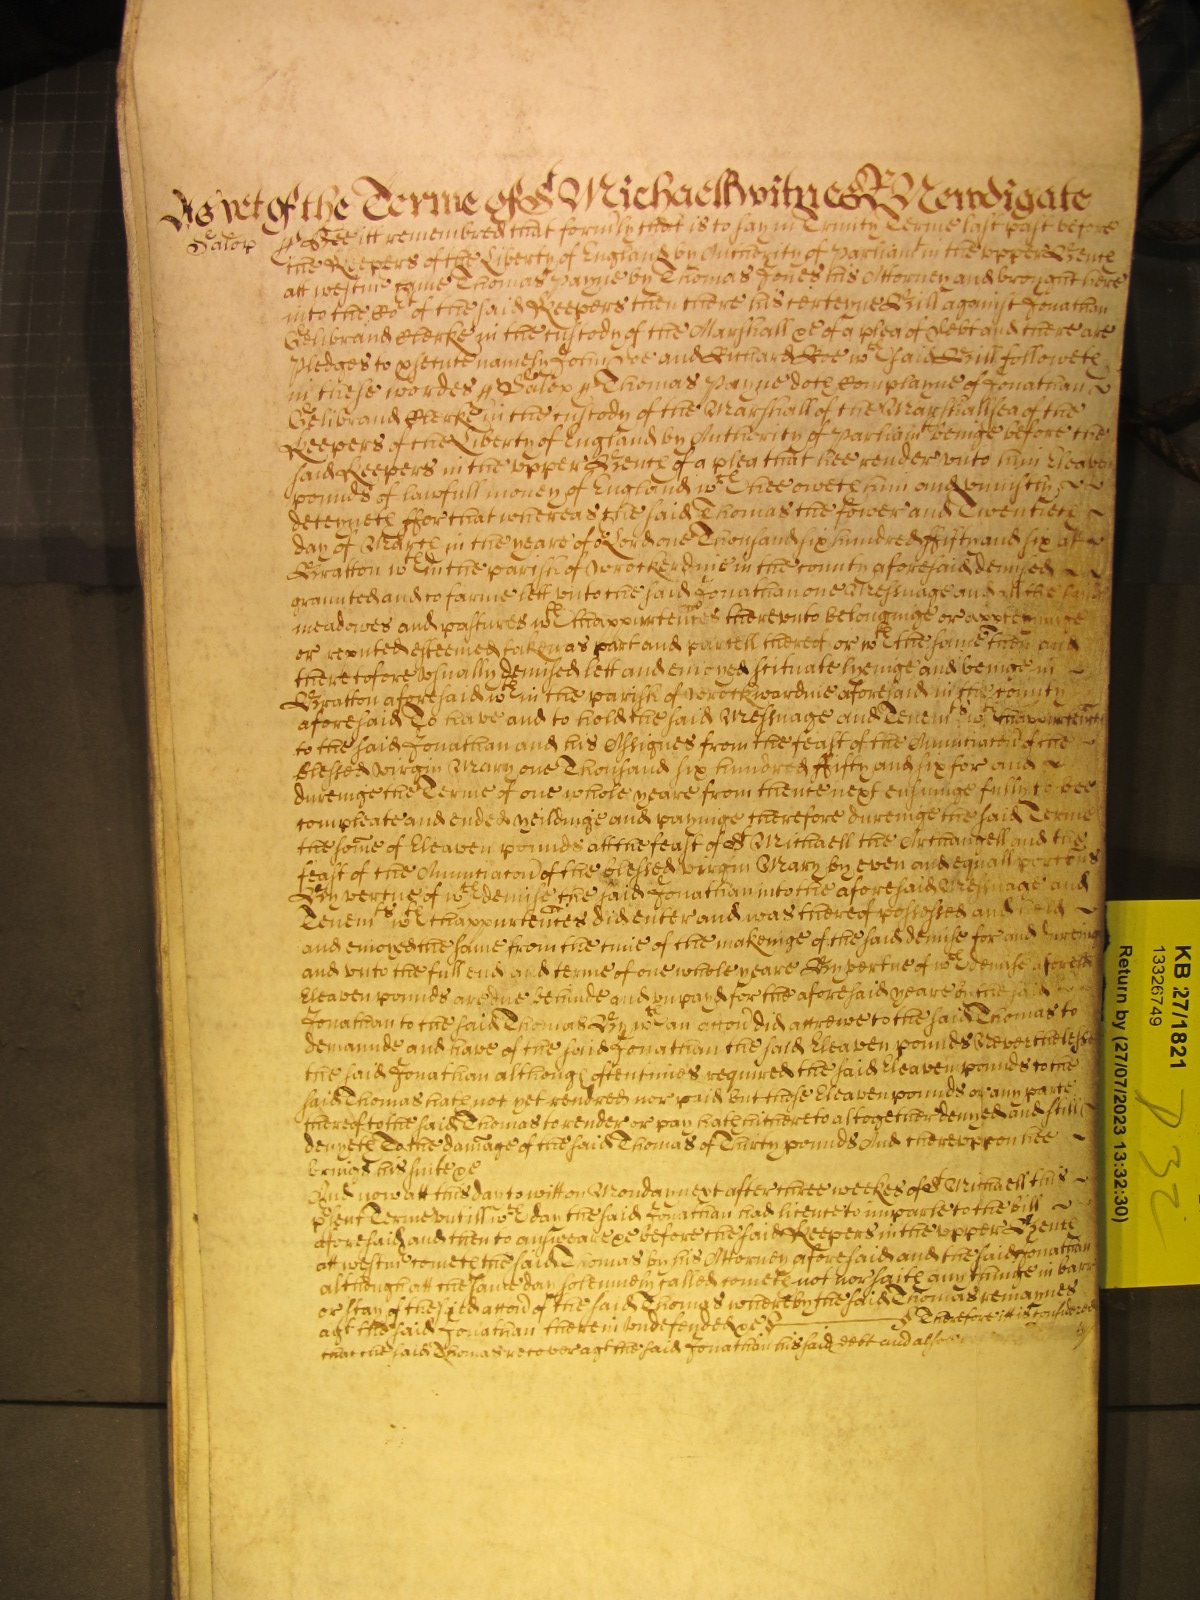 As yet of the Terme of St Michaell witnes R Newdigate
Salop ss Bee itt remembred that formly that is to say in Trinity Terme last past before
the Keepers of the Liberty of England by Authority of Parliamt in the upper Bench
att westmr came Thomas Payne by Thomas Jones his Attorney and brought here
into the Cort of the said Keepers then there his certeyne Bill against Jonathan
Gelibrand Clerke in the custody of the Marshall &c of a plea of Debt and there are
Pledges to psecute namely John Doe and Richard Roe wch said Bill followeth
in these wordes ss Salop ss Thomas Payne doth Complayne of Jonathan
Gelibrand Clerke in the custody of the Marshall of the Marshallsea of the
Keepers of the Liberty of England by Authority of Parliamt beinge before the
said Keepers in the upper Bench of a plea that hee render unto him Eleaven
pounds of lawfull money of England wch hee oweth him and uniustly
deteyneth ffor that whereas the said Thomas the fower and Twentieth
day of March in the yeare of or Lord one Thousand six hundred ffifty and six att
Bratton wth in the parish of Wrockerdyne in the county aforesaid demysed
graunted and to farme lett unto the said Jonathan one Messuage and all the lands
meadowes and pastures wth thappurtences thereunto belonginge or apperteyninge
or reputed esteemed taken as part and parcell thereof or wth the same then and
theretofore usually demised lett and enioyed scituate lyeinge and beinge in
Bratton aforesaid wth in the parish of Wrockwardine aforesaid in the county
aforesaid To have and to hold the said Messuage and Tenemts wth thappurtences
to the said Jonathan and his Assignes from the feast of the Anuntiacon of the
blessed virgin Mary one Thousand six hundred ffifty and six for and
dureinge the Terme of one whole yeare from thence next ensuinge fully to bee
compleate and ended yeildinge and payinge therefore dureinge the said Terme
the some of Eleaven pounds att the feast of St Michaell the Archangell and the
feast of the Anuntiacon of the blessed virgin Mary by even and equall porcons
By vertue of wch demise the said Jonathan into the aforesaid Messuage and
Tenemts wth thappurtences did enter and was thereof possessed and held
and enioyed the same from the time of the makeinge of the said demise for and dureing
and unto the full end and terme of one whole yeare By vertue of wch demise aforesd
Eleaven pounds are due behinde and unpayd for the aforesaid yeare by the said
Jonathan to the said Thomas By wch an accon did accrewe to the said Thomas to
demaunde and have of the said Jonathan the said Eleaven pounds Neverthelesse
the said Jonathan although oftentimes required the said Eleaven pounds to the
said Thomas hath not yet rendred nor paid but those Eleaven pounds or any parte
thereof to the said Thomas to render or pay hath hitherto altogether denyed and still
denyeth To the damage of the said Thomas of Thirty pounds And thereuppon hee
brings his suite &c
And now att this day to witt on Monday next after three weekes of St Michaell this
psent Terme untill wch day the said Jonathan had licence to imparle to the bill
aforesaid and then to answeare &c before the said Keepers in the upper Bench
att westmr cometh the said Thomas by his Attorney aforesaid and the said Jonathan
although att the same day solemnely called cometh not nor saith any thinge in barr
or stay of the accon of the said Thomas whereby the said Thomas remaynes
agt the said Jonathan therein undefended &c Therefore itt is considered
that the said Thomas recover agt the said Jonathan his said debt and also
KB 27/1821
13326749
Return by (27/07/2023 13:32:30)
D32